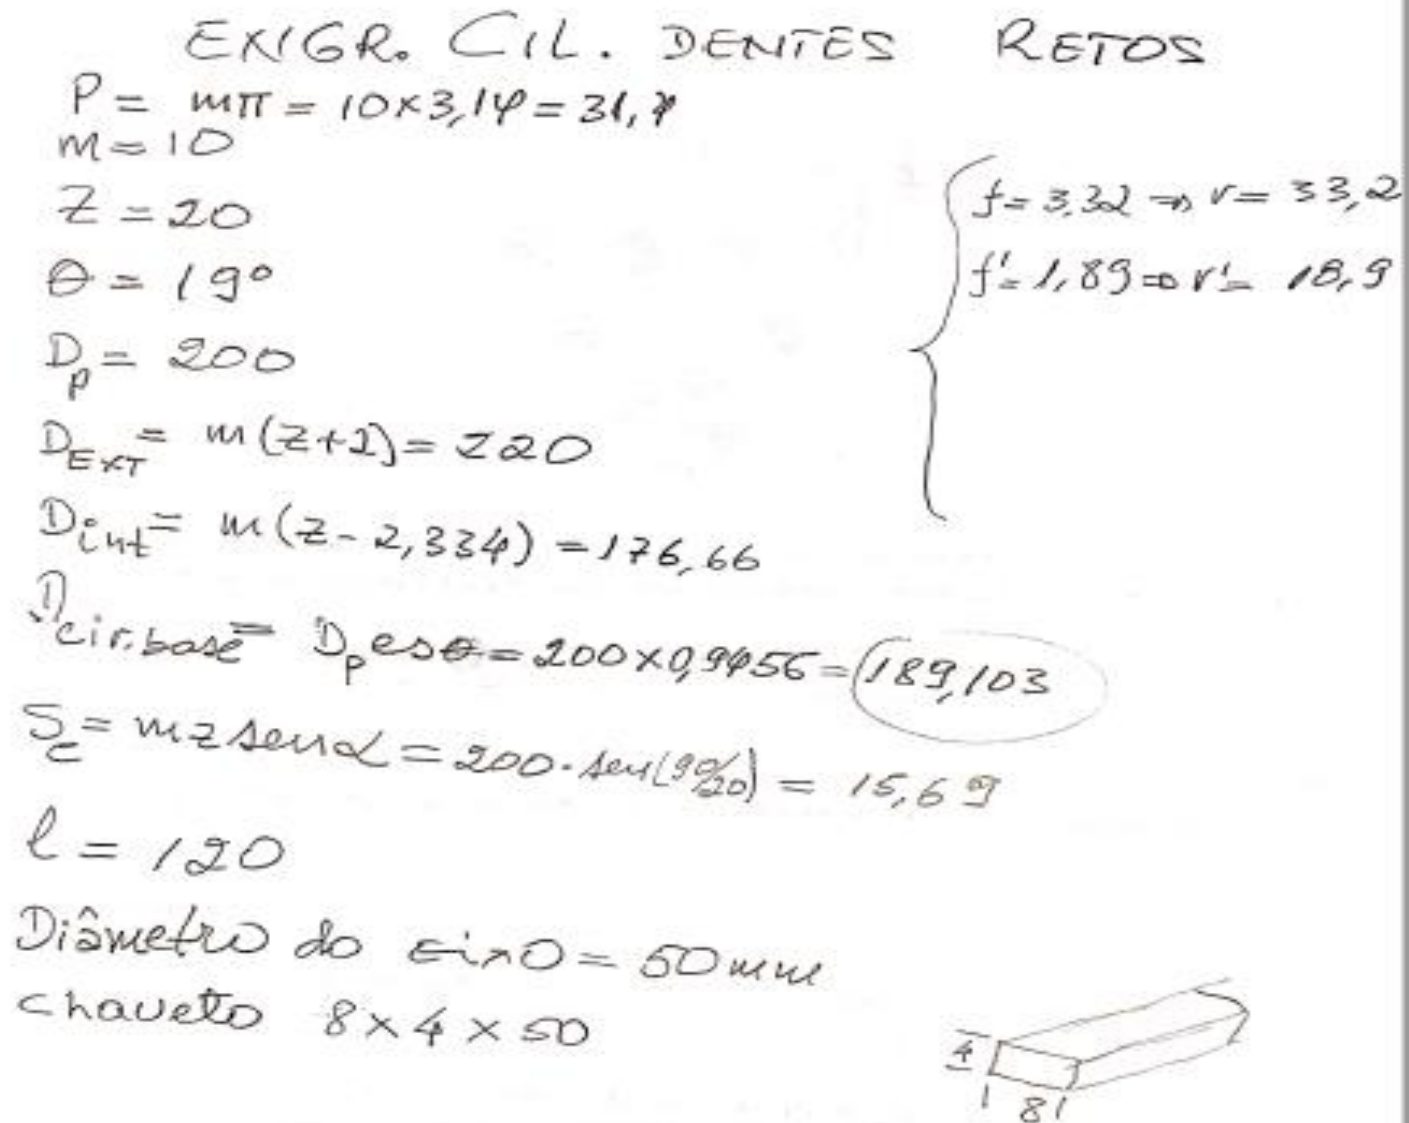 ENGR. CIL. DENTES RETOS
P = mπ = 10×3,14 = 31,4
m = 10
Z = 20
θ = 19°
Dp = 200
DEXT = m(z+2) = 220
Dint = m(z-2,334) = 176,66
Dcir.base = Dp cosθ = 200×0,9456 = 189,103
Sc = mz senα = 200·sen(90/20) = 15,69
l = 120
Diâmetro do Eixo = 50mm
chaveta 8×4×50
f = 3,32 ⇒ r = 33,2
f' = 1,89 ⇒ r' = 18,9
4
8